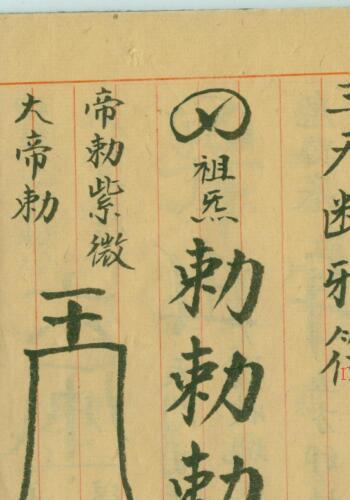 三天断邪符
祖炁
勅
勅
勅
帝勅紫微
大帝勅